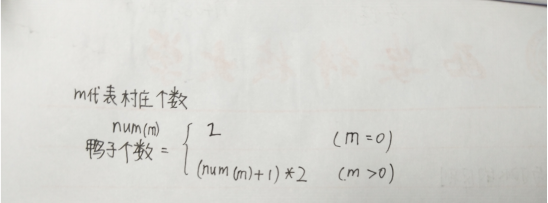 m代表村庄个数
num(m)
鸭子个数 = { 2 (m=0)
(num(m)+1)*2 (m>0)